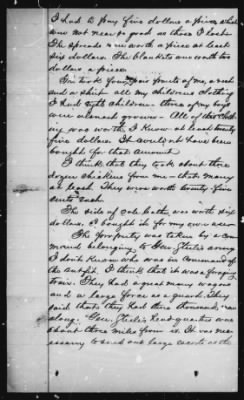 I had to pay five dollars a piece which
are not near so good as those I lost.
The spreads were worth a piece at least
six dollars. The blankets were worth two
dollars a piece.
They took four pair pants of me, a vest
and a shirt all my childrens clothing
I had eight children - three of my boys
were almost grown - All of this cloth-
ing was worth, I know at least twenty
five dollars. It could not have been
bought for that amount.
I think that they took about three
dozen chickens from me - that many
at least. They were worth twenty five
cents each.
The side of sole leather was worth six
dollars. I bought it for my own use.
The property was taken by a com-
mand belonging to Gen. Steele's army
I don't know who was in command of
the outfit. I think that it was a forage
train. They had a great many wagons
and a large force as a guard. They
said that they had three thousand men
along. Gen. Steele's headquarters was
about three miles from us. It was nec-
essary to send out large escorts as the